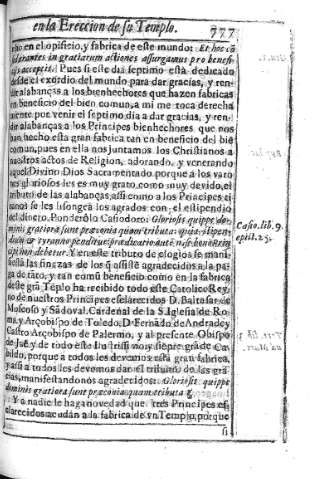 en la Ereccion de su Templo. 777
cho en el opificio, y fabrica de este mundo: Et hoc cõ
siderantes in gratiarum actiones assurgamus pro benefi-
cijs acceptis. Pues si este dia septimo està dedicado
desde el exordio del mundo para dar gracias, y ren-
dir alabanças a los bienhechores que hazen fabricas
en beneficio del bien comun, a mi me toca derecha
mente por venir el septimo dia a dar gracias, y ren-
dir alabanças a los Principes bienhechores que nos
han hecho esta gran fabrica tan en beneficio del biẽ
comun, pues en ella nos juntamos los Christianos a
nuestros actos de Religion, adorando, y venerando
aquel Divino Dios Sacramentado, porque a los varo
nes gloriosos les es muy grato, como muy devido, el
tributo de las alabanças, assi como a los Principes ti
ranos se les lisongea los agrados con el estipendio
del dinero. Ponderòlo Casiodoro: Gloriosis quippe do-
minis gratiora sunt præconia quam tributa: quia stipen-
dium & tyranno penditur, prædicatio autem nisi bono Prin
cipi non debetur. Y en este tributo de elogios se mani-
festà las finezas de los q̃ assistẽ agradecidos a la pa
ga de tãto, y tan comũ beneficio como en la fabrica
deste grã Tẽplo ha recibido todo este Catolico Rey
no de nuestros Principes esclarecidos D. Baltasar de
Moscoso y Sãdoval, Cardenal de la S. Iglesia de Ro-
ma, y Arçobispo de Toledo, D. Fernãdo de Andrade y
Castro Arçobispo de Palermo, y al presente Obispo
de Jaẽ, y de todo este Illustrissimo, y siẽpre grãde Ca-
bildo, porque a todos les devemos esta gran fabrica,
y assi a todos les devemos dar el tributo de las gra
cias, manifestandonos agradecidos: Gloriosis quippe
dominis gratiora sunt præconia, quam tributa &c.
Y a nadie le haga novedad que tres Principes es-
clarecidos acudan a la fabrica de vn Templo, porque
si
Casio. lib. 9
epist. 25.